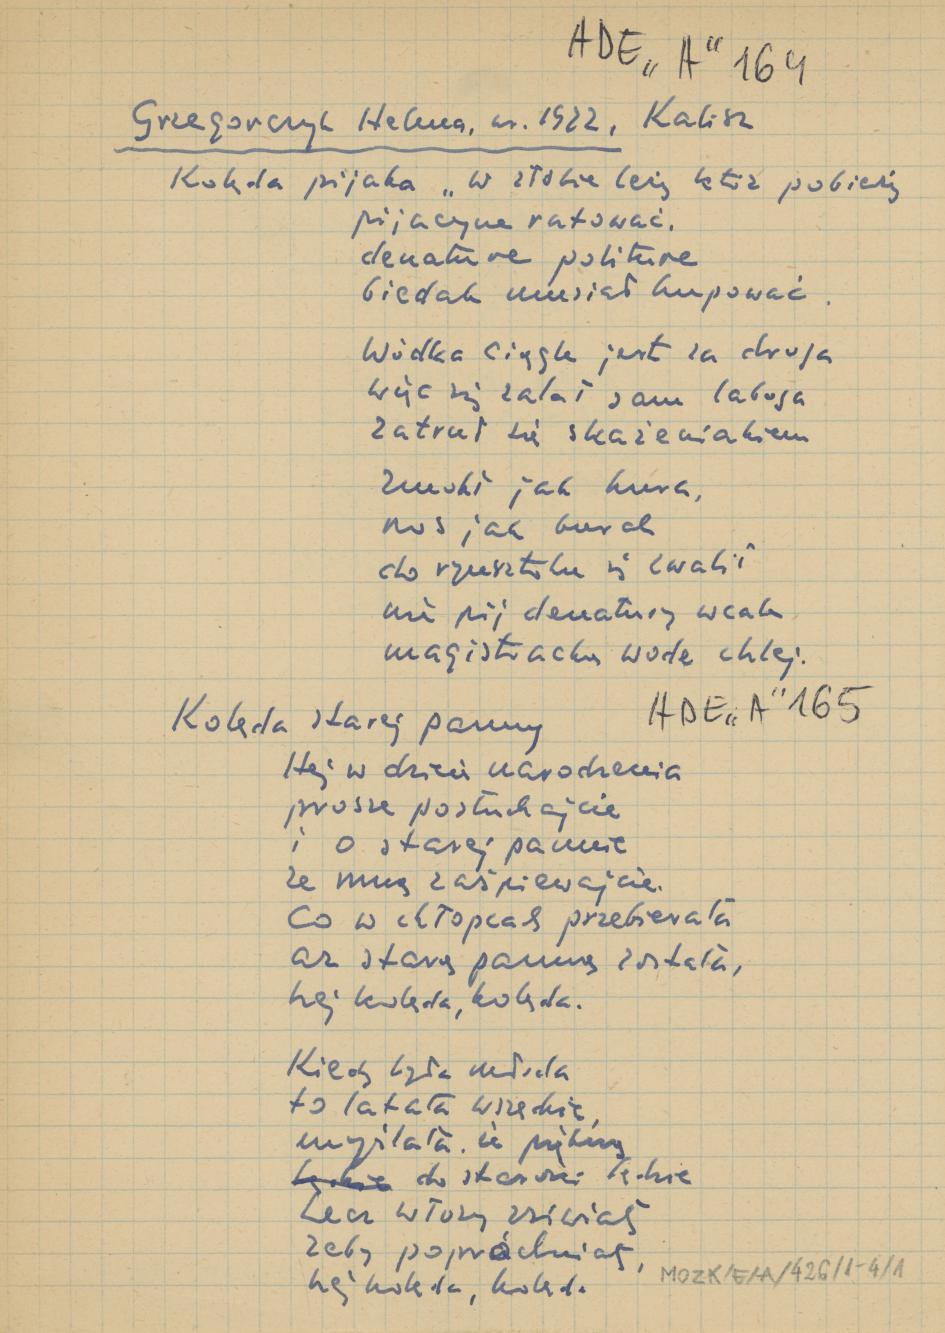 ADE „A" 164
Grzegorczyk Helena, ur. 1922, Kalisz
Kolęda pijaka „W żłobie leży któż pobieży
pijaczyne ratować.
denature politure
biedak musiał kupować.
Wódka ciągle jest za droga
więc się zalał sam laboga
Zatruł się skażeniakiem
Zmókł jak kura,
nos jak burak
do rynsztoku się zwalił
nie pij denatury wcale
magistracką wodę chlej.
Kolęda starej panny
ADE „A" 165
Hej w dzień narodzenia
prosze posłuchajcie
i o starej pannie
ze mną zaśpiewajcie.
Co w chłopcach przebierała
aż starą panną została,
hej kolęda, kolęda.
Kiedy była młoda
to latała wszędzie,
myślała że piękną
będzie do starości będzie
Lecz włosy zsiwiały
zęby popróchniały,
hej kolęda, kolęda
MOZK/E/A/426/1-4/1